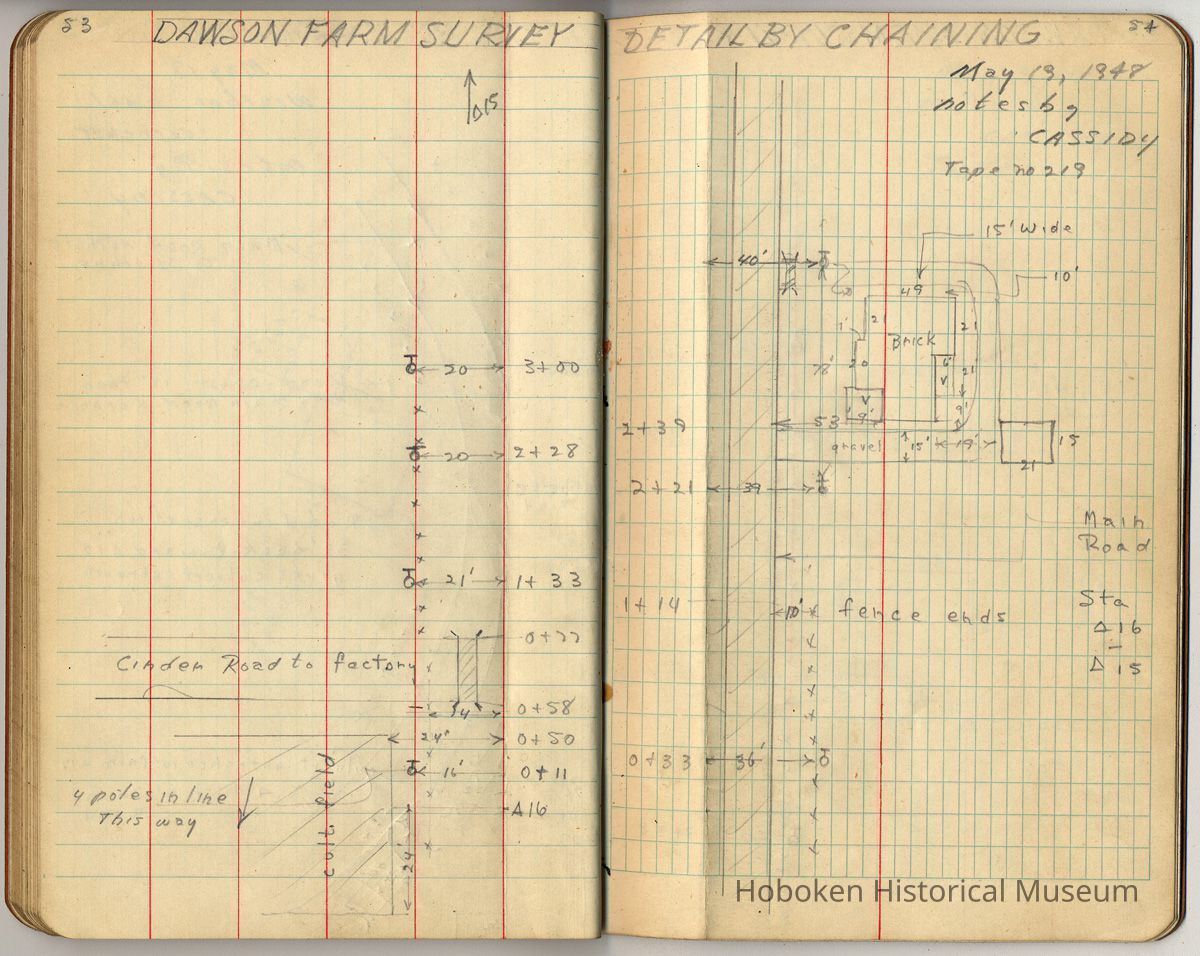 53
DAWSON FARM SURVEY
Δ15
20 3+00
20 2+28
21' 1+33
0+77
Cinder Road to factory
14' 0+58
24' 0+50
16' 0+11
4 poles in line
This way
Δ16
cult. field
24'
54
DETAIL BY CHAINING
May 19, 1948
notes by
CASSIDY
Tape no 219
15' Wide
40'
10'
49
21
1'
21
Brick
78'
20
6'
21'
V
V
9'
9'
2+39
53
gravel
15'
19'
15
21
2+21
39
Main
Road
1+14
10'
fence ends
Sta
Δ16
-
Δ15
0+33
36'
Hoboken Historical Museum